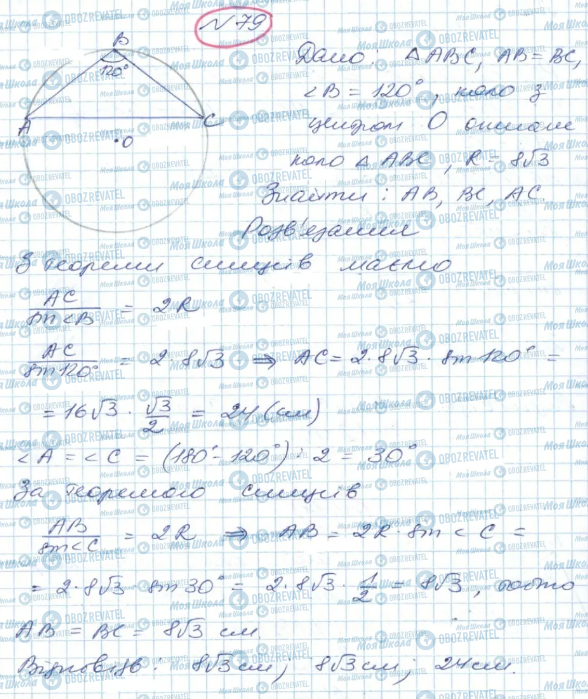 №79
B
120°
A
C
O
Дано: △ABC, AB = BC,
∠B = 120°, коло з
центром O описане
коло △ABC, R = 8√3
Знайти: AB, BC, AC.
Розв'язання
З теореми синусів маємо
AC / sin∠B = 2R
AC / sin120° = 2·8√3 ⇒ AC = 2·8√3 · sin120° =
= 16√3 · √3/2 = 24 (см)
∠A = ∠C = (180° - 120°) : 2 = 30°
За теоремою синусів
AB / sin∠C = 2R ⇒ AB = 2R · sin∠C =
= 2·8√3 · sin30° = 2·8√3 · 1/2 = 8√3, тобто
AB = BC = 8√3 см
Відповідь: 8√3 см; 8√3 см; 24 см.
Моя Школа
OBOZREVATEL